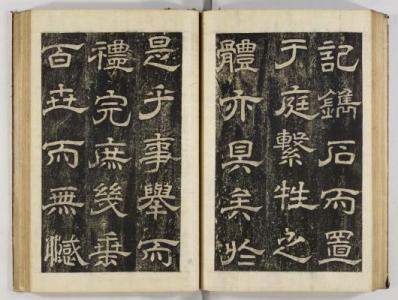 記鐫石而置
于庭繫牲之
體亦具矣於
是乎事舉而
禮完庶幾垂
百世而無憾